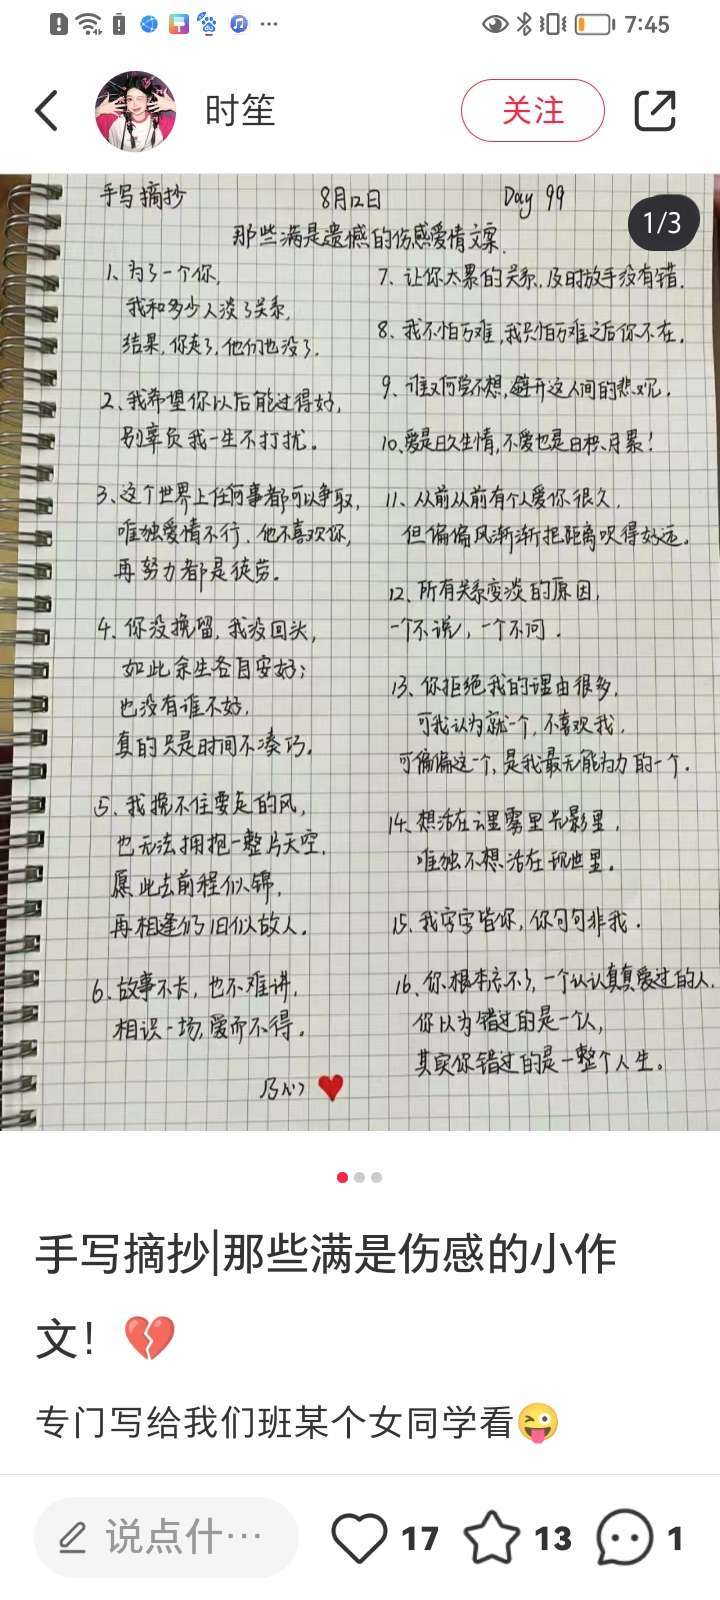 7:45
时笙
关注
1/3
手写摘抄 8月12日 Day 99
那些满是遗憾的伤感爱情文案.
1、为了一个你,
我和多少人淡了关系,
结果,你走了,他们也没了.
2、我希望你以后能过得好,
别辜负我一生不打扰。
3、这个世界上任何事都可以争取,
唯独爱情不行.他不喜欢你,
再努力都是徒劳。
4、你没挽留,我没回头,
如此余生各自安好;
也没有谁不好,
真的只是时间不凑巧。
5、我挽不住要走的风,
也无法拥抱一整片天空,
愿此去前程似锦,
再相逢仍旧似故人。
6、故事不长,也不难讲,
相识一场,爱而不得。
7、让你太累的关系,及时放手没有错.
8、我不怕万难,我只怕万难之后你不在。
9、谁又何尝不想,避开这人间的悲欢.
10、爱是日久生情,不爱也是日积月累!
11、从前从前有个人爱你很久,
但偏偏风渐渐把距离吹得好远。
12、所有关系变淡的原因,
一个不说,一个不问.
13、你拒绝我的理由很多,
可我认为就一个,不喜欢我,
可偏偏这一个,是我最无能为力的一个.
14、想活在云里雾里光影里,
唯独不想活在现世里。
15、我字字皆你,你句句非我.
16、你根本忘不了,一个认认真真爱过的人,
你以为错过的是一个人,
其实你错过的是一整个人生。
手写摘抄|那些满是伤感的小作
文！💔
专门写给我们班某个女同学看😜
说点什…
17
13
1